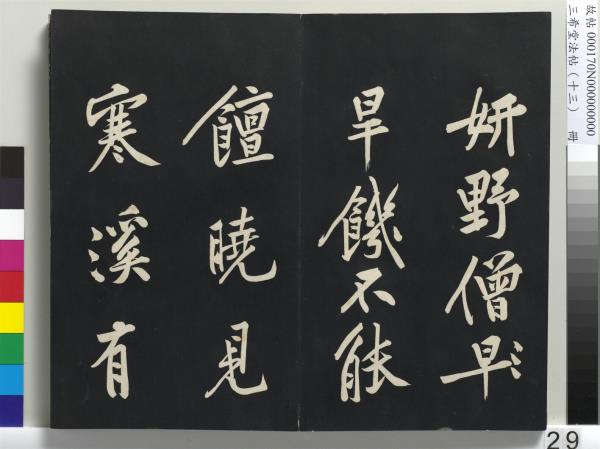 妍野僧早
旱饑不能
饘曉見
寒溪有
故帖 000170N000000000
三希堂法帖(十三) 冊
29